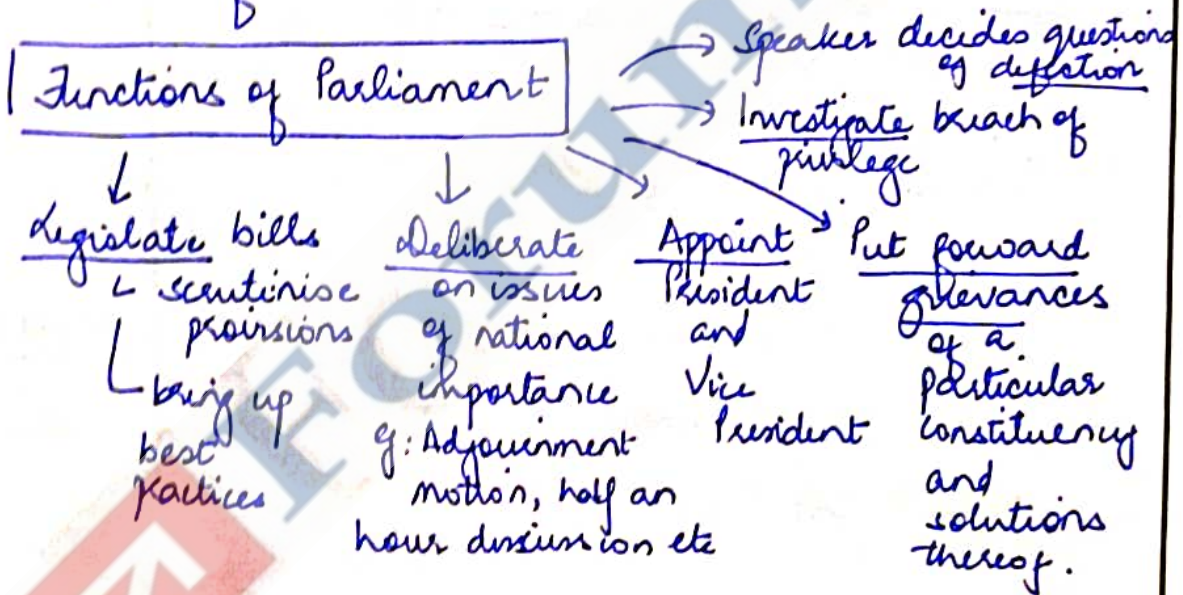 Functions of Parliament
Speaker decides questions
of defection
Investigate breach of
privilege
Legislate bills
scrutinise
provisions
bring up
best
practices
Deliberate
on issues
of national
importance
eg: Adjournment
motion, half an
hour discussion etc
Appoint
President
and
Vice
President
Put forward
grievances
of a
particular
constituency
and
solutions
thereof.
Forum